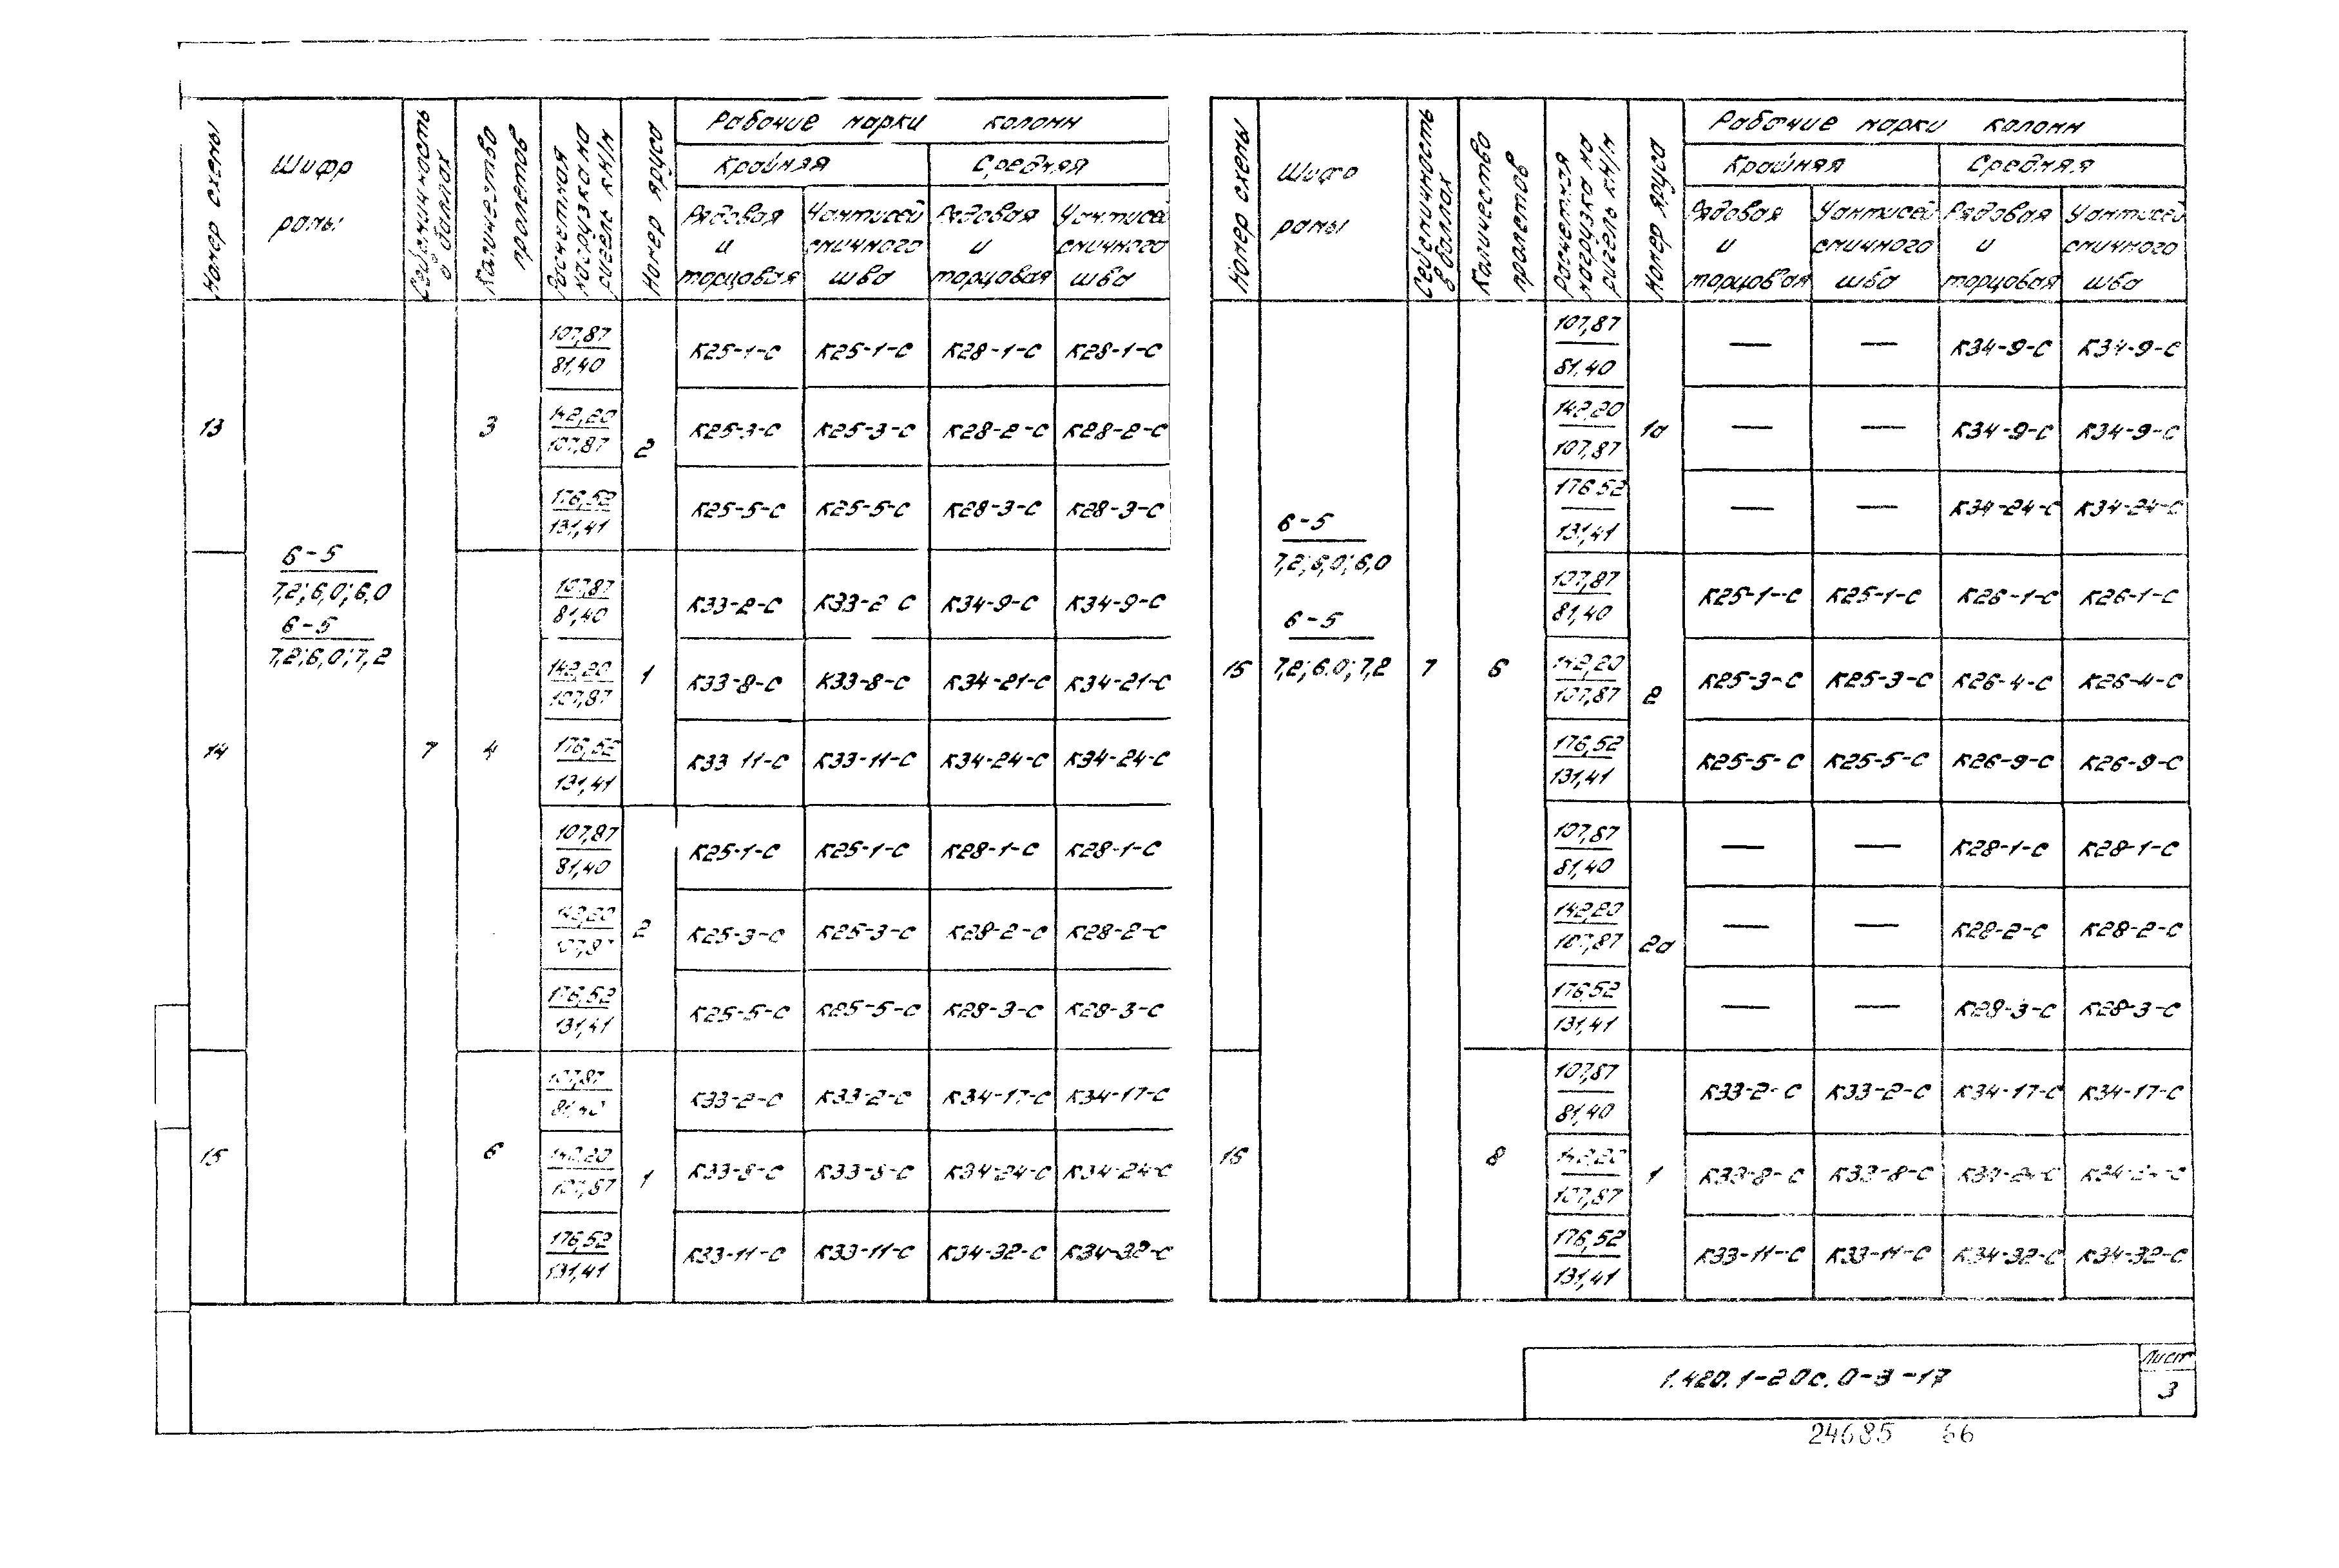 Номер схемы
Шифр рамы
Сейсмичность в баллах
Количество пролетов
Расчетная нагрузка на ригель кН/м
Номер яруса
Рабочие марки колонн
Крайняя
Средняя
Рядовая и торцовая
У антисейсмичного шва
Рядовая и торцовая
У антисейсмичного шва
13
6-5
7,2; 6,0; 6,0
6-5
7,2; 6,0; 7,2
7
3
2
107,87 / 81,40 К25-1-С К25-1-С К28-1-С К28-1-С
142,20 / 107,87 К25-3-С К25-3-С К28-2-С К28-2-С
176,52 / 131,41 К25-5-С К25-5-С К28-3-С К28-3-С
14
4
1
107,87 / 81,40 К33-2-С К33-2 С К34-9-С К34-9-С
142,20 / 107,87 К33-8-С К33-8-С К34-21-С К34-21-С
176,52 / 131,41 К33 11-С К33-11-С К34-24-С К34-24-С
2
107,87 / 81,40 К25-1-С К25-1-С К28-1-С К28-1-С
142,20 / 107,87 К25-3-С К25-3-С К28-2-С К28-2-С
176,52 / 131,41 К25-5-С К25-5-С К28-3-С К28-3-С
15
6
1
107,87 / 81,40 К33-2-С К33-2-С К34-17-С К34-17-С
142,20 / 107,87 К33-8-С К33-8-С К34-24-С К34-24-С
176,52 / 131,41 К33-11-С К33-11-С К34-32-С К34-32-С
Номер схемы
Шифр рамы
Сейсмичность в баллах
Количество пролетов
Расчетная нагрузка на ригель кН/м
Номер яруса
Рабочие марки колонн
Крайняя
Средняя
Рядовая и торцовая
У антисейсмичного шва
Рядовая и торцовая
У антисейсмичного шва
15
6-5
7,2; 6,0; 6,0
6-5
7,2; 6.0; 7,2
7
6
1а
107,87 / 81,40 — — К34-9-С К34-9-С
142,20 / 107,87 — — К34-9-С К34-9-С
176,52 / 131,41 — — К34-24-С К34-24-С
2
107,87 / 81,40 К25-1-С К25-1-С К26-1-С К26-1-С
142,20 / 107,87 К25-3-С К25-3-С К26-4-С К26-4-С
176,52 / 131,41 К25-5-С К25-5-С К26-9-С К26-9-С
2а
107,87 / 81,40 — — К28-1-С К28-1-С
142,20 / 107,87 — — К28-2-С К28-2-С
176,52 / 131,41 — — К28-3-С К28-3-С
16
8
1
107,87 / 81,40 К33-2-С К33-2-С К34-17-С К34-17-С
142,20 / 107,87 К33-8-С К33-8-С
176,52 / 131,41 К33-11-С К33-11-С К34-32-С К34-32-С
1.420.1-20с.0-3-17
Лист
3
24685 66